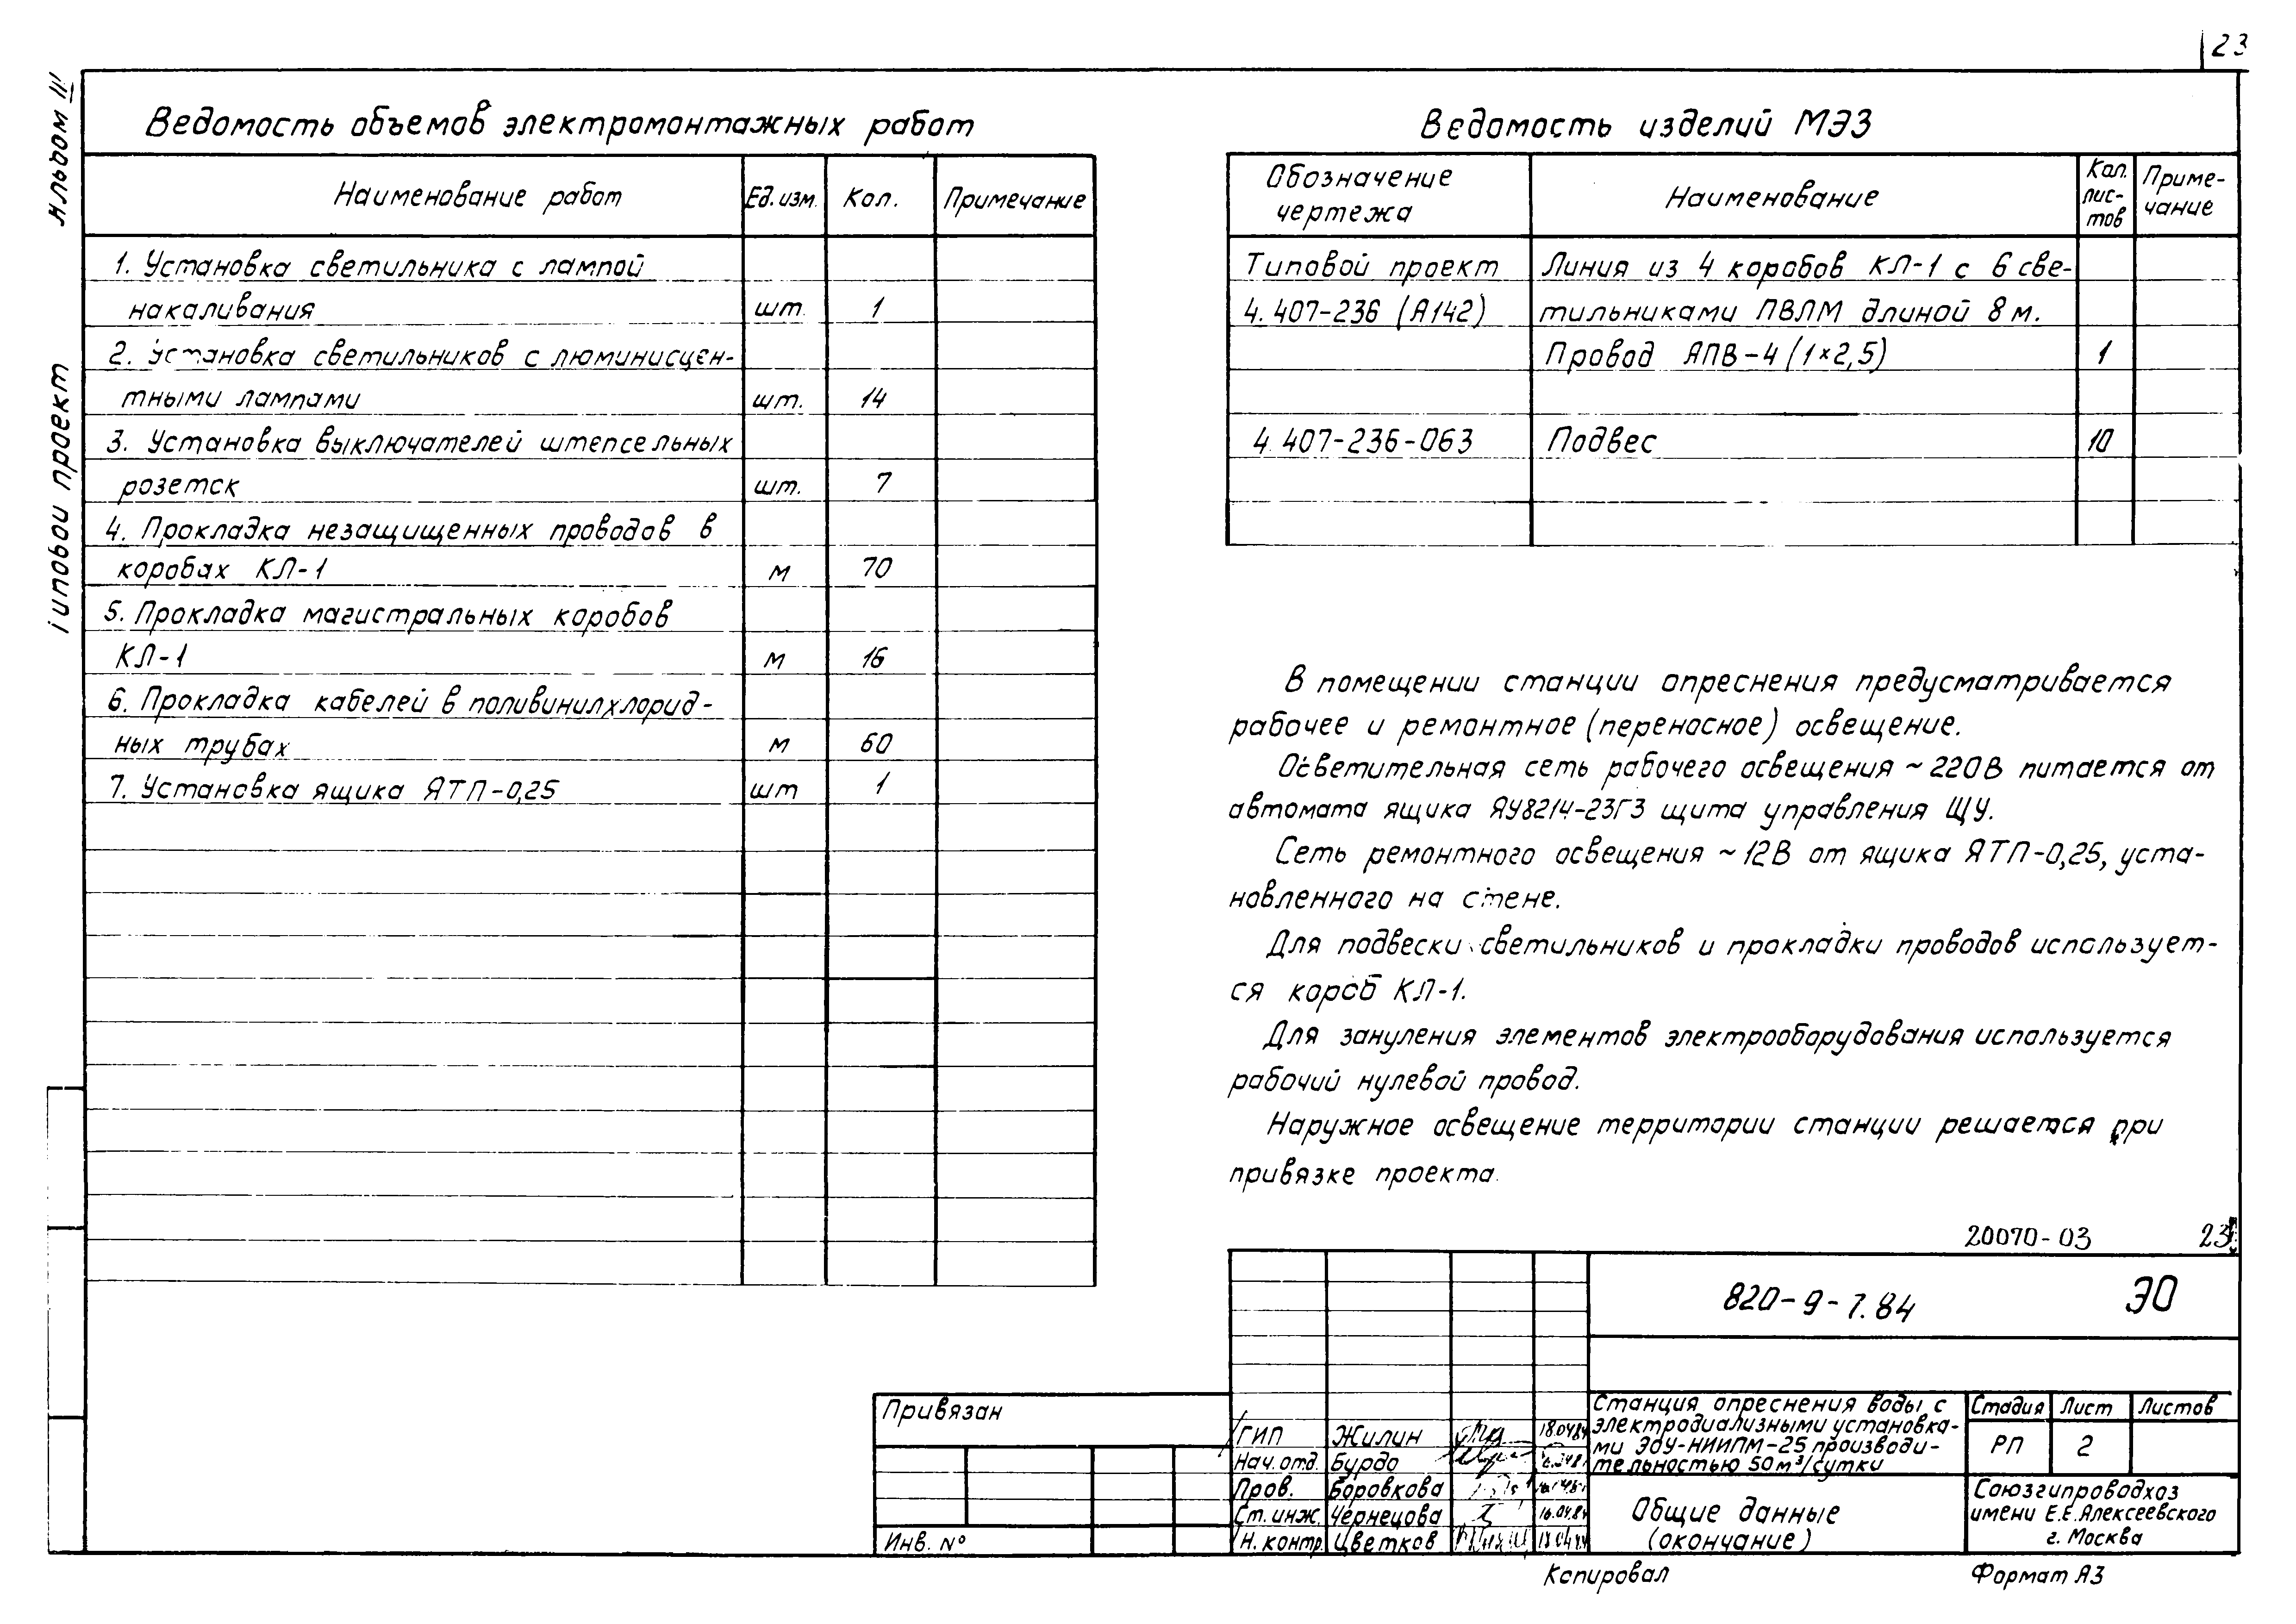 23
Альбом III
Типовой проект
Ведомость объемов электромонтажных работ
Наименование работ Ед. изм. Кол. Примечание
1. Установка светильника с лампой
накаливания шт. 1
2. Установка светильников с люминисцен-
тными лампами шт. 14
3. Установка выключателей штепсельных
розеток шт. 7
4. Прокладка незащищенных проводов в
коробах КЛ-1 м 70
5. Прокладка магистральных коробов
КЛ-1 м 16
6. Прокладка кабелей в поливинилхлорид-
ных трубах м 60
7. Установка ящика ЯТП-0,25 шт 1
Ведомость изделий МЭЗ
Обозначение чертежа Наименование Кол. лис-тов Приме-чание
Типовой проект Линия из 4 коробов КЛ-1 с 6 све-
4.407-236 (А142) тильниками ПВЛМ длиной 8 м.
Провод АПВ-4 (1×2,5) 1
4.407-236-063 Подвес 10
В помещении станции опреснения предусматривается
рабочее и ремонтное (переносное) освещение.
Осветительная сеть рабочего освещения ~220В питается от
автомата ящика ЯУ8214-23ГЗ щита управления ЩУ.
Сеть ремонтного освещения ~12В от ящика ЯТП-0,25, уста-
новленного на стене.
Для подвески светильников и прокладки проводов использует-
ся короб КЛ-1.
Для зануления элементов электрооборудования используется
рабочий нулевой провод.
Наружное освещение территории станции решается при
привязке проекта.
20070-03 23
820-9-7.84 ЭО
Привязан
Инв. №
ГИП Жилин 18.04.84
Нач. отд. Бурдо
Пров. Боровкова
Ст. инж. Чернецова 16.04.84
Н. контр. Цветков 18.04.84
Станция опреснения воды с
электродиализными установка-
ми ЭОУ-НИИПМ-25 производи-
тельностью 50м³/сутки
Стадия Лист Листов
РП 2
Общие данные
(окончание)
Союзгипроводхоз
имени Е.Е.Алексеевского
г. Москва
Копировал Формат А3